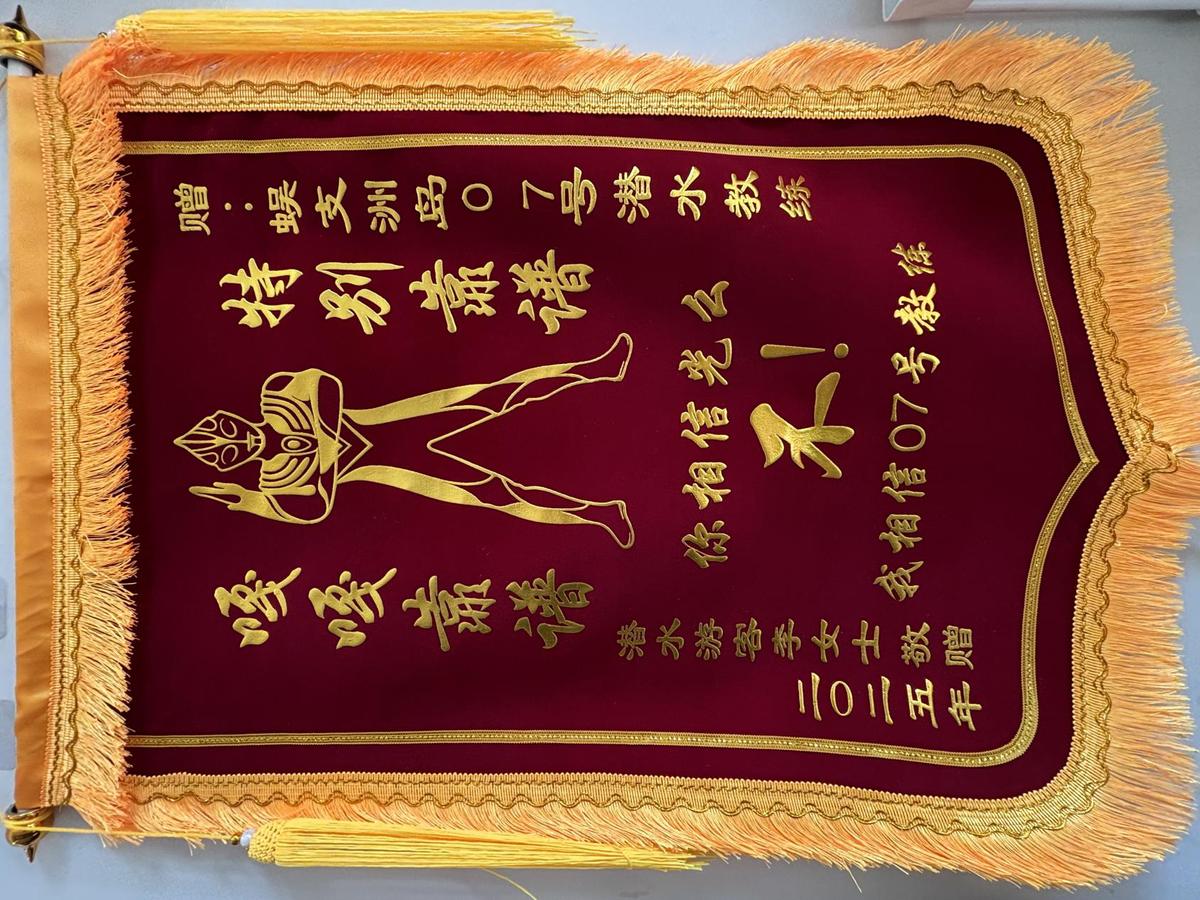 赠：蜈支洲岛07号潜水教练
特别靠谱
嘎嘎靠谱
你相信光么
不！
我相信07号教练
潜水游客李女士敬赠
二〇二五年